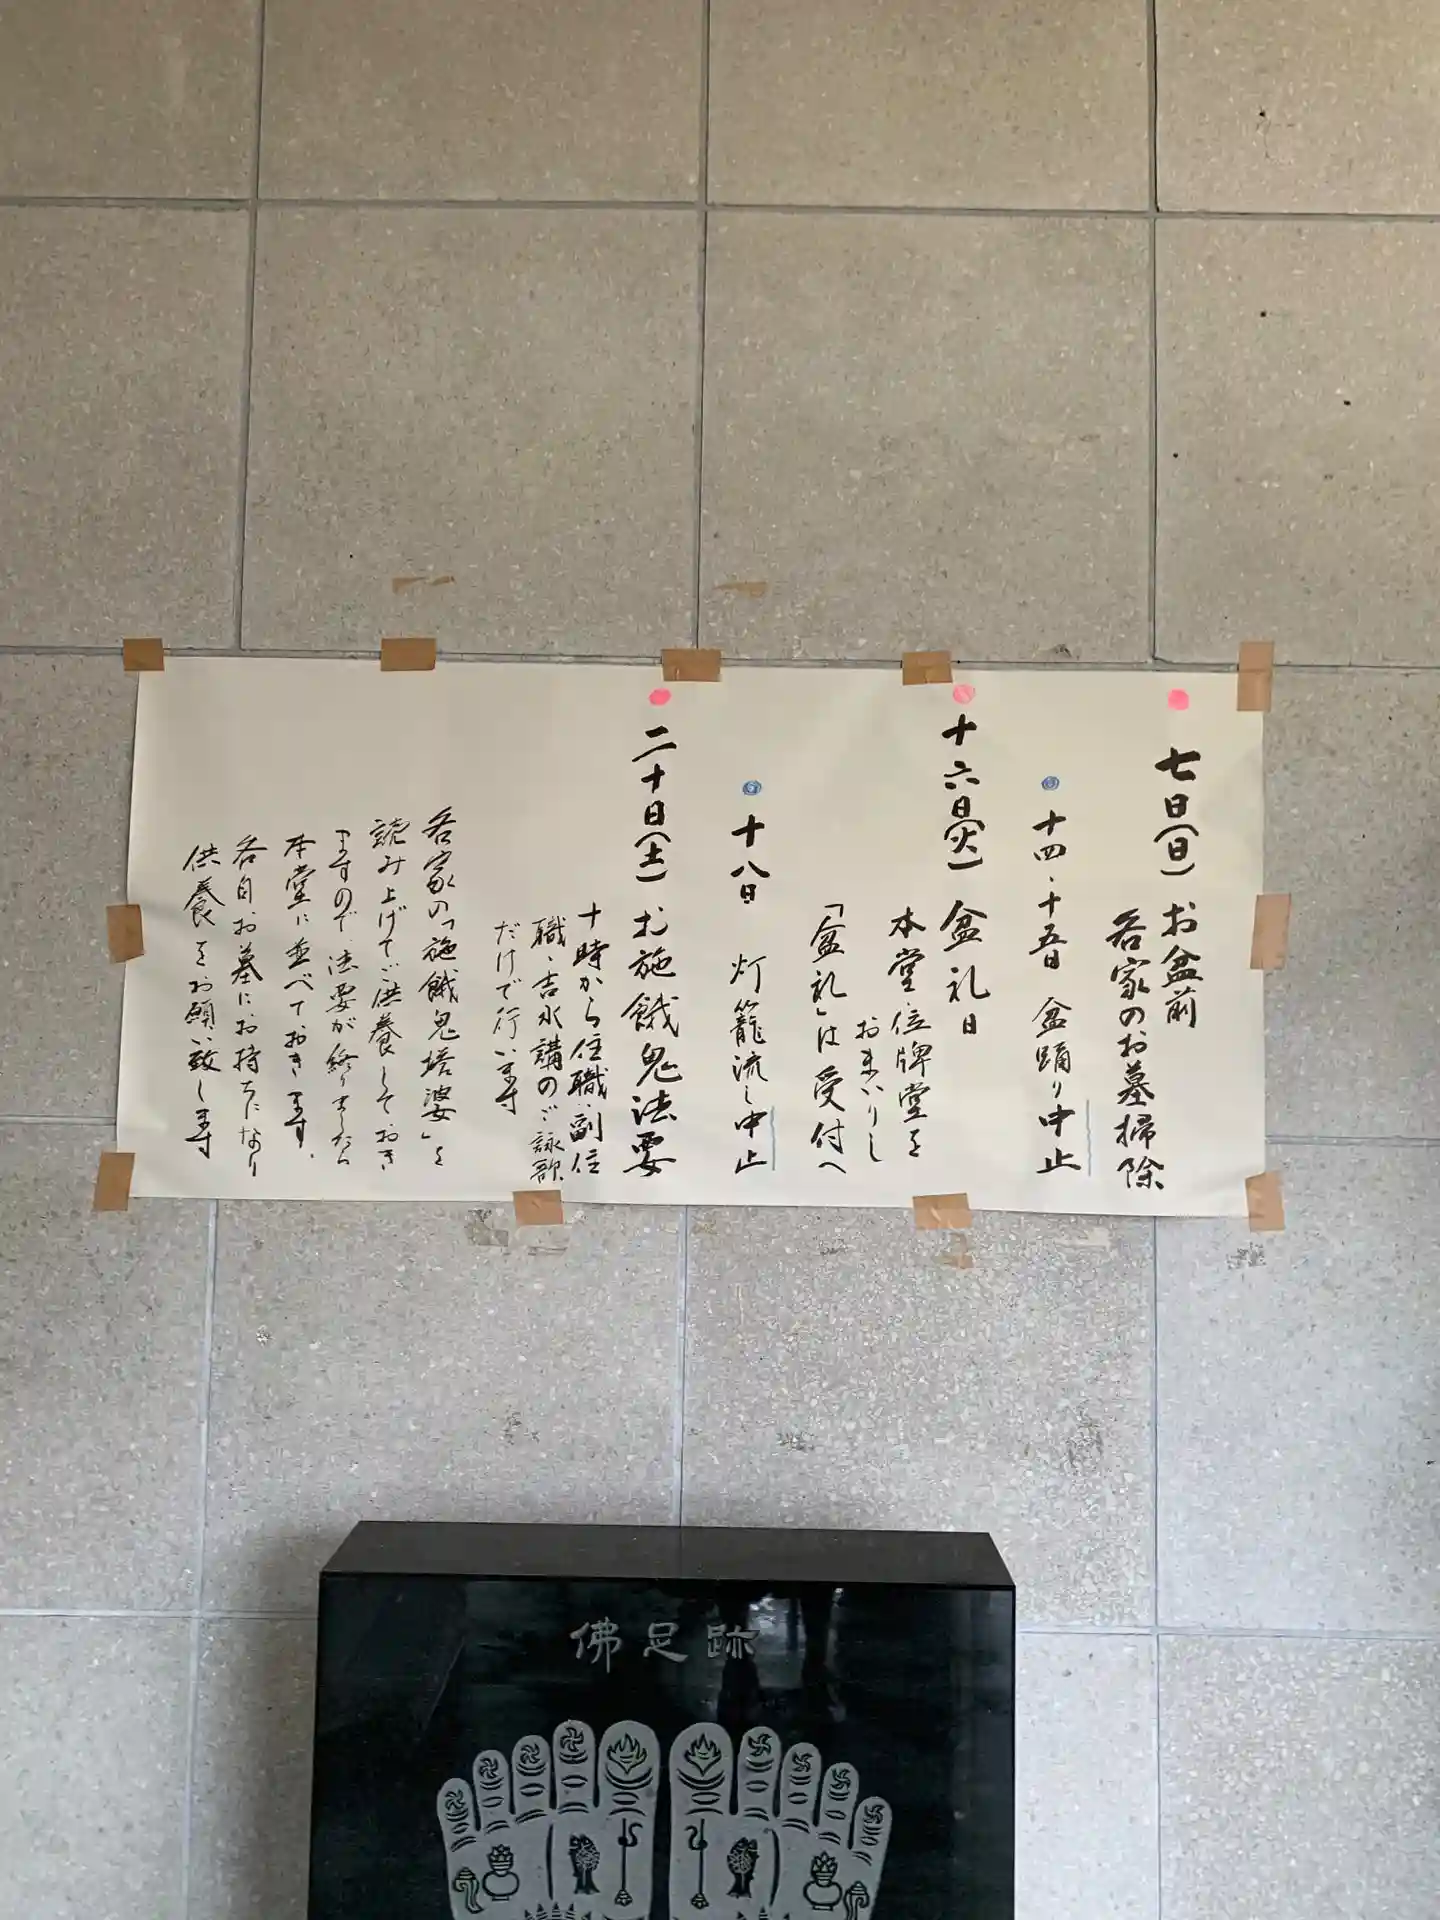 七日(日) お盆前
各家のお墓掃除
十四、十五日 盆踊り中止
十六日(火) 盆礼日
本堂位牌堂を
おまいりし
「盆礼」は受付へ
十八日 灯籠流し中止
二十日(土) お施餓鬼法要
十時から住職、副住
職、吉水講のご詠歌
だけで行います
各家の「施餓鬼塔婆」を
読み上げてご供養しておき
ますので、法要が終りましたら
本堂に並べておきます、
各自お墓にお持ちになり
供養をお願い致します
佛足跡